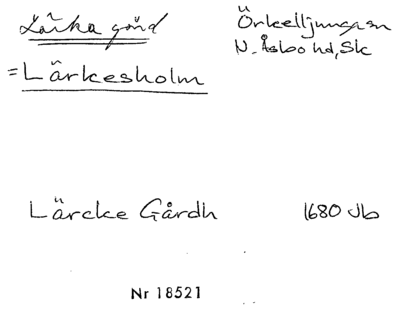 Lärka gård
Örkelljunga sn
N. Åsbo hd, Sk
= Lärkesholm
Lärcke Gårdh 1680 Jb
Nr 18521